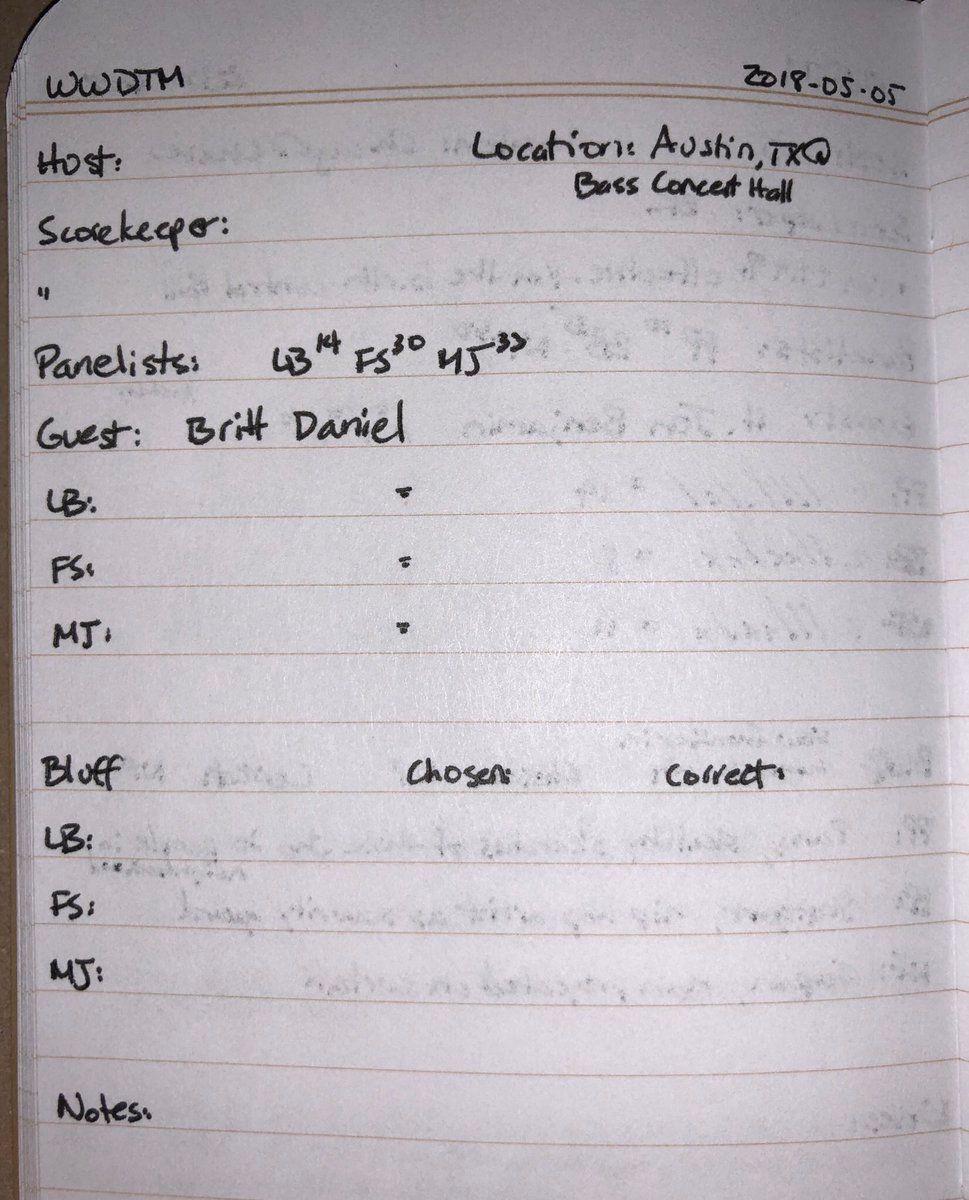 WWDTM 2018-05-05
Host: Location: Austin, TX @
Bass Concert Hall
Scorekeeper:
"
Panelists: LB14 FS30 MJ33
Guest: Britt Daniel
LB: =
FS: =
MJ: =
Bluff Chosen: Correct:
LB:
FS:
MJ:
Notes: